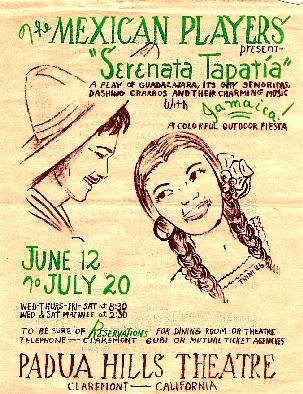 The MEXICAN PLAYERS
present-
"Serenata Tapatía"
A PLAY OF GUADALAJARA, ITS GAY SEÑORITAS,
DASHING CHARROS AND THEIR CHARMING MUSIC
With
Jamaica!
A COLORFUL OUTDOOR FIESTA
JUNE 12
to JULY 20
WED-THURS-FRI-SAT at 8:30
WED & SAT MATINEE at 2:30
TO BE SURE OF RESERVATIONS FOR DINING ROOM OR THEATRE
TELEPHONE — CLAREMONT 6081 OR MUTUAL TICKET AGENCIES
PADUA HILLS THEATRE
CLAREMONT — CALIFORNIA